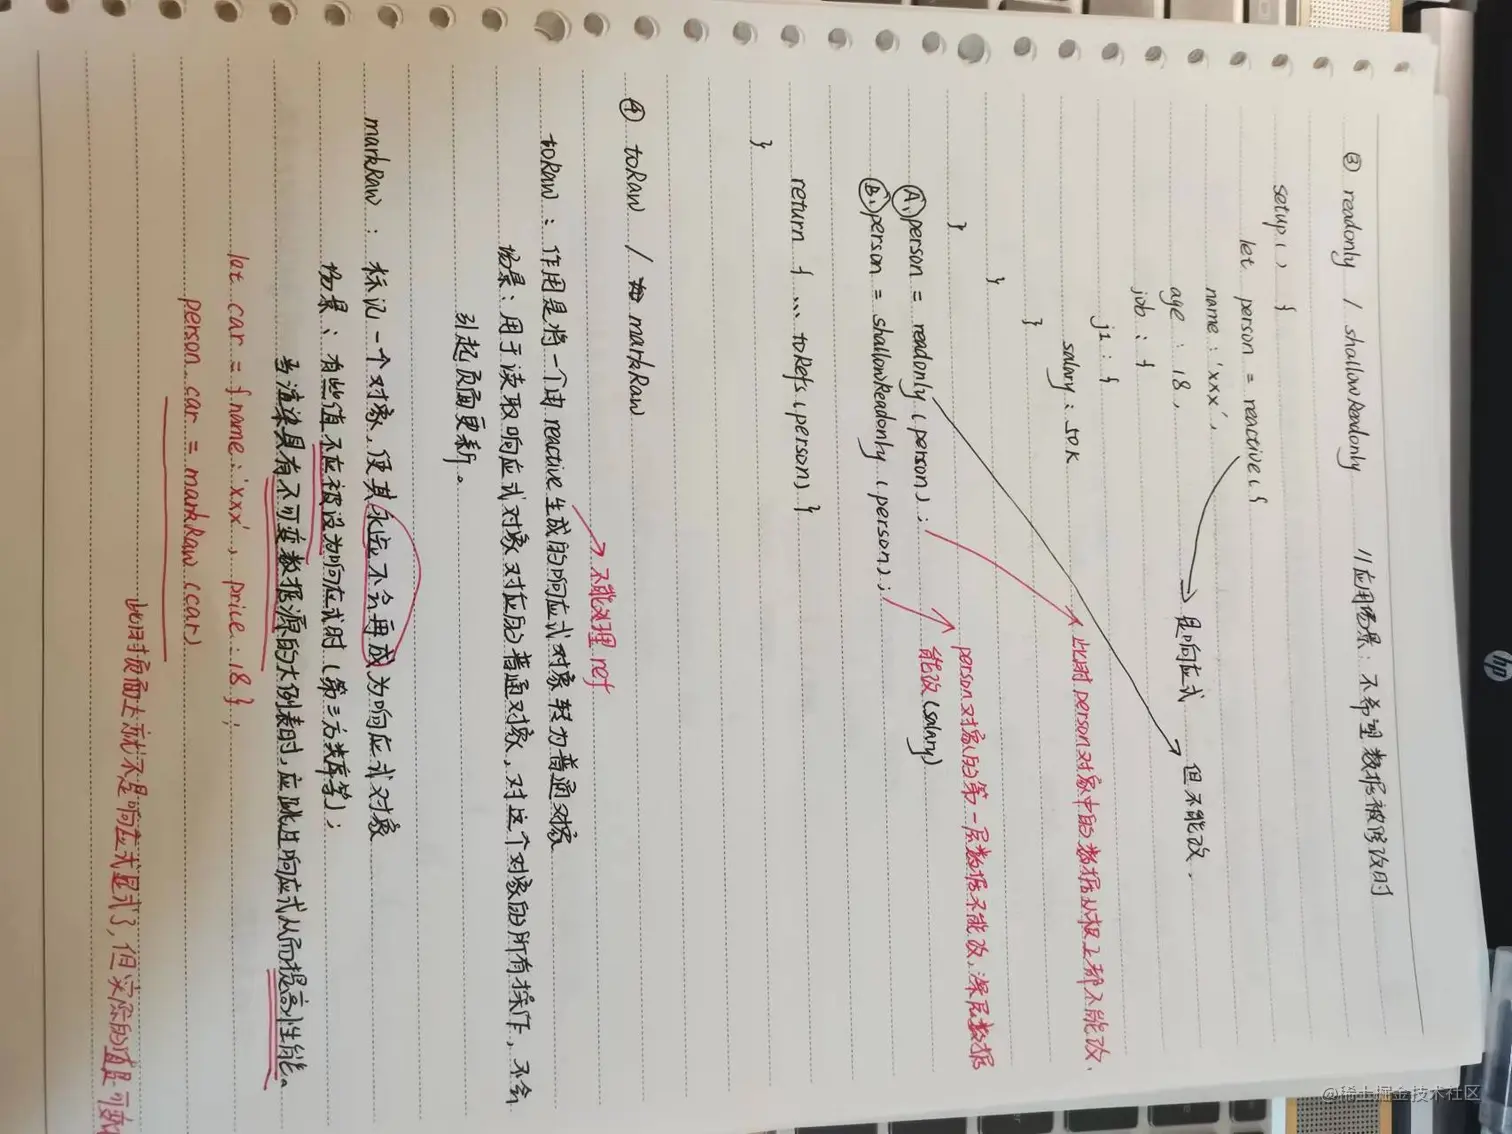 ③ readonly / shallowReadonly //应用场景：不希望数据被修改时
setup() {
let person = reactive({ 是响应式 但不能改，
name：'xxx'，
age：18，
job：{
j1：{
salary：50K
}
}
}
A. person = readonly（person）； 此时person对象中的数据从根上都不能改，
B. person = shallowReadonly（person）； person对象的第一层数据不能改，深层数据
能改（salary）
return { ...toRefs（person）}
}
④ toRaw / markRaw
不能处理 ref
toRaw：作用是将一个由reactive生成的响应式对象转为普通对象
场景：用于读取响应式对象对应的普通对象，对这个对象的所有操作，不会
引起页面更新。
markRaw：标记一个对象，使其永远不会再成为响应式对象
场景：有些值不应被设为响应式时（第三方类库等）；
当渲染具有不可变数据源的大列表时，应跳过响应式从而提高性能。
let car = {name：'xxx'，price：18}；
person.car = markRaw（car）
此时页面上就不是响应式显式了，但实际的值是可变
hp
@稀土掘金技术社区